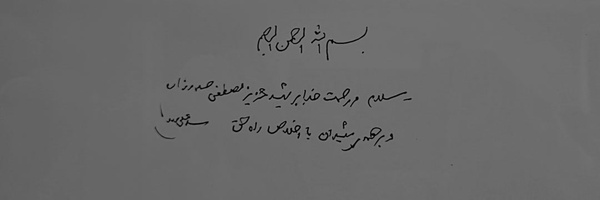 بسم الله الرحمن الرحیم
سلام و رحمت خدا بر شهید عزیز مصطفی صدرزاده
و بر همه‌ی شهیدان با اخلاص راه حق